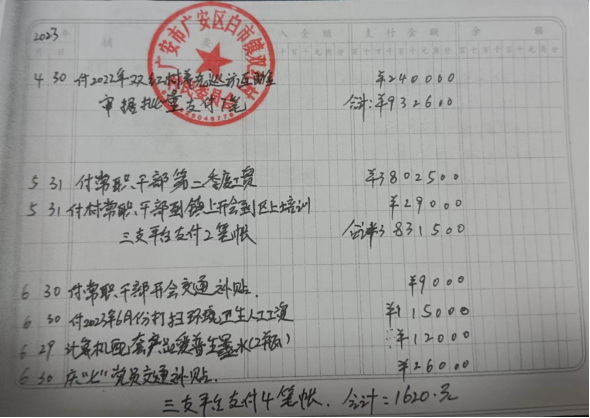 2023年
月 日 摘 人 金 额 支 付 金 额 余 额
4 30 付2022年双红村 ¥240000
审据批量支付1笔 合计:¥932600
5 31 付常职干部第二季度工资 ¥3802500
5 31 付村常职干部到镇上开会到区上培训 ¥29000
三支平台支付2笔帐 合计¥3831500
6 30 付常职干部开会交通补贴. ¥9000
6 30 付2023年6月份打扫环境卫生人工工资 ¥115000
6 29 计算机配套产品爱普生墨水(2瓶) ¥12000
6 30 庆"七一"党员交通补贴. ¥26000
三支平台支付4笔帐. 合计=1620.元
广安市广安区白市镇双 村村民委员会